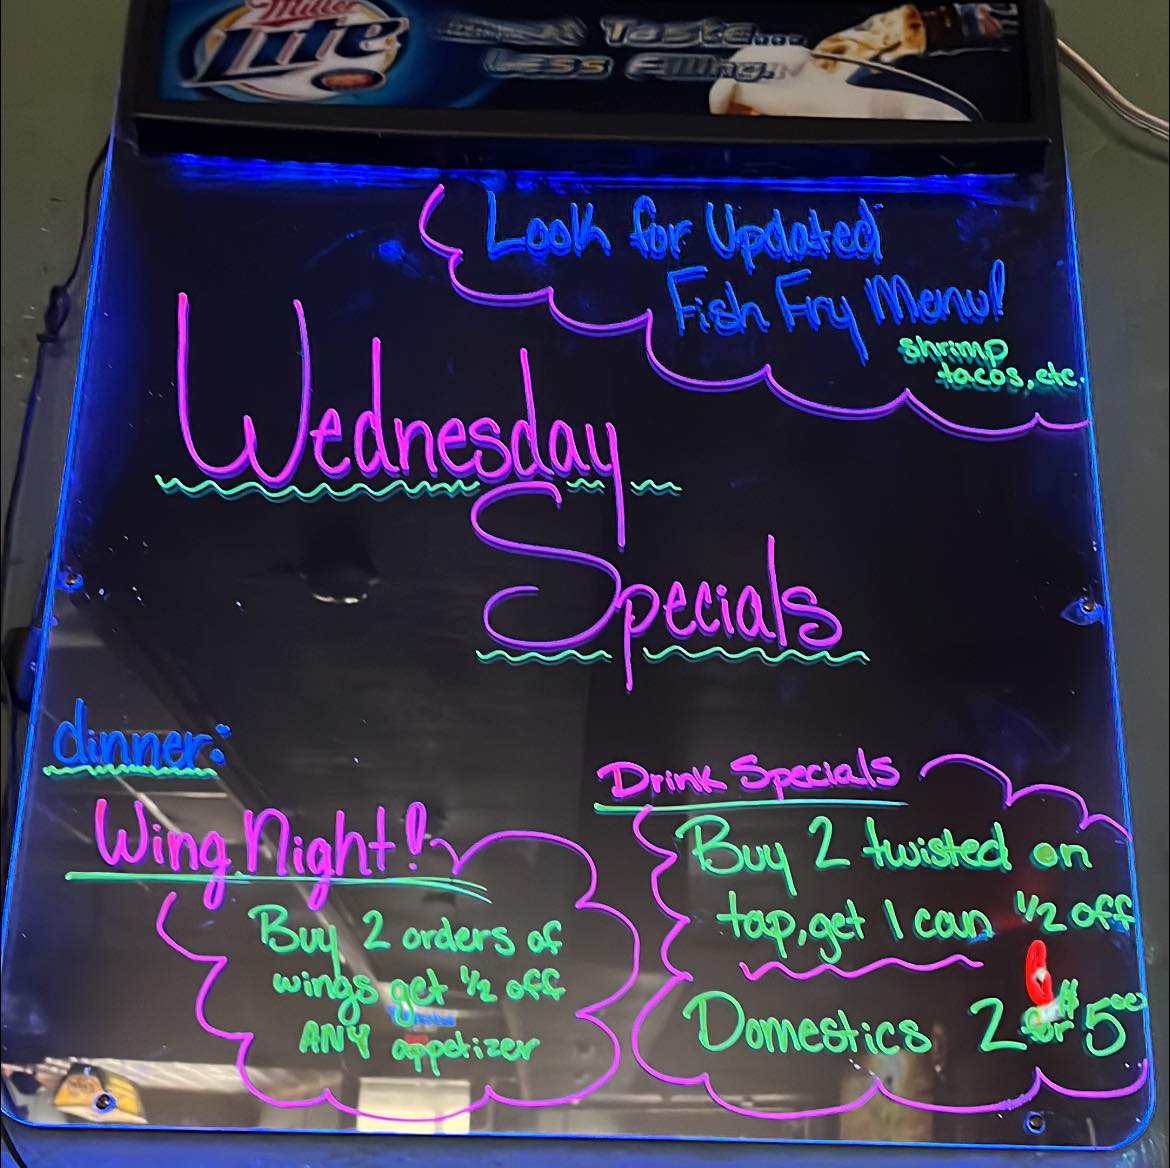 Miller
Lite
Great Taste...
Less Filling.
Look for Updated
Fish Fry Menu!
shrimp
tacos, etc.
Wednesday
Specials
dinner:
Wing Night!
Buy 2 orders of
wings get 1/2 off
ANY appetizer
Drink Specials
Buy 2 twisted on
tap, get 1 can 1/2 off
Domestics 2 for $5.00